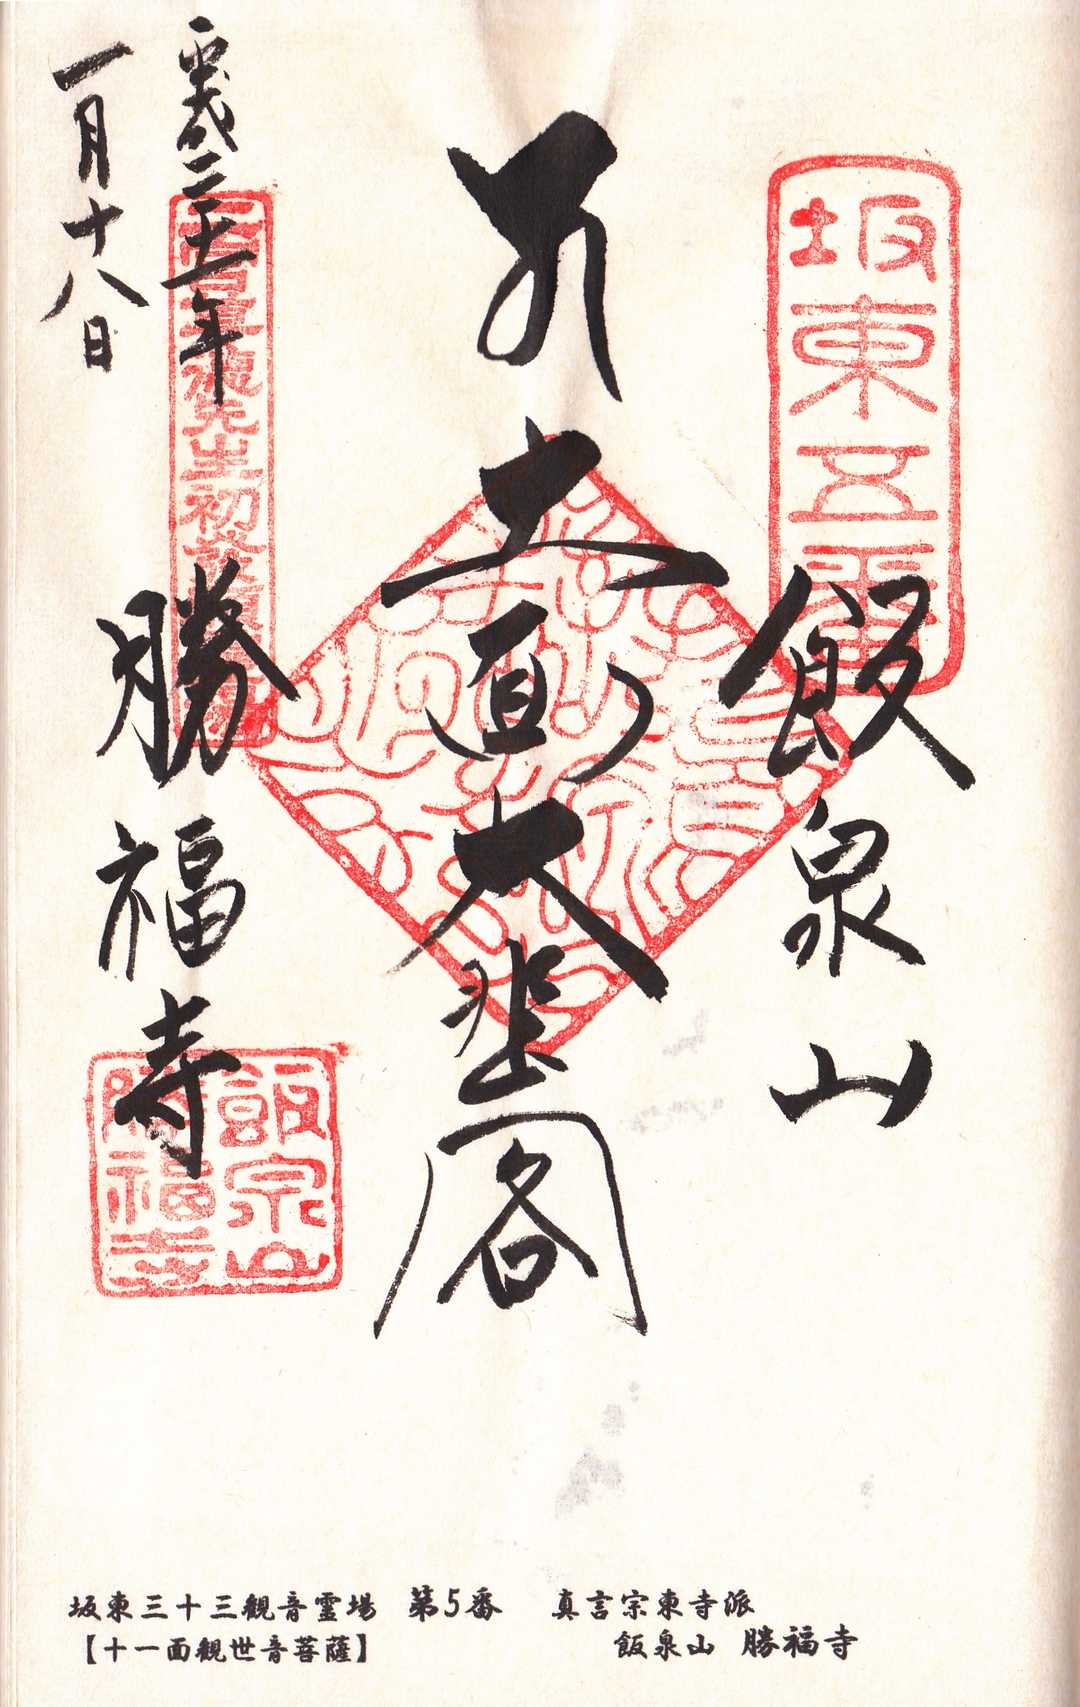 坂東五番
飯泉山
十一面大悲閣
勝福寺
平成二十一年
一月十八日
飯泉山
勝福寺
坂東三十三観音霊場 第5番 真言宗東寺派
【十一面観世音菩薩】 飯泉山 勝福寺